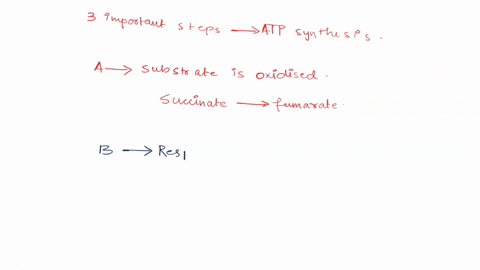 3 important steps → ATP synthesis.
A → Substrate is oxidised.
Succinate → fumarate.
B → Res